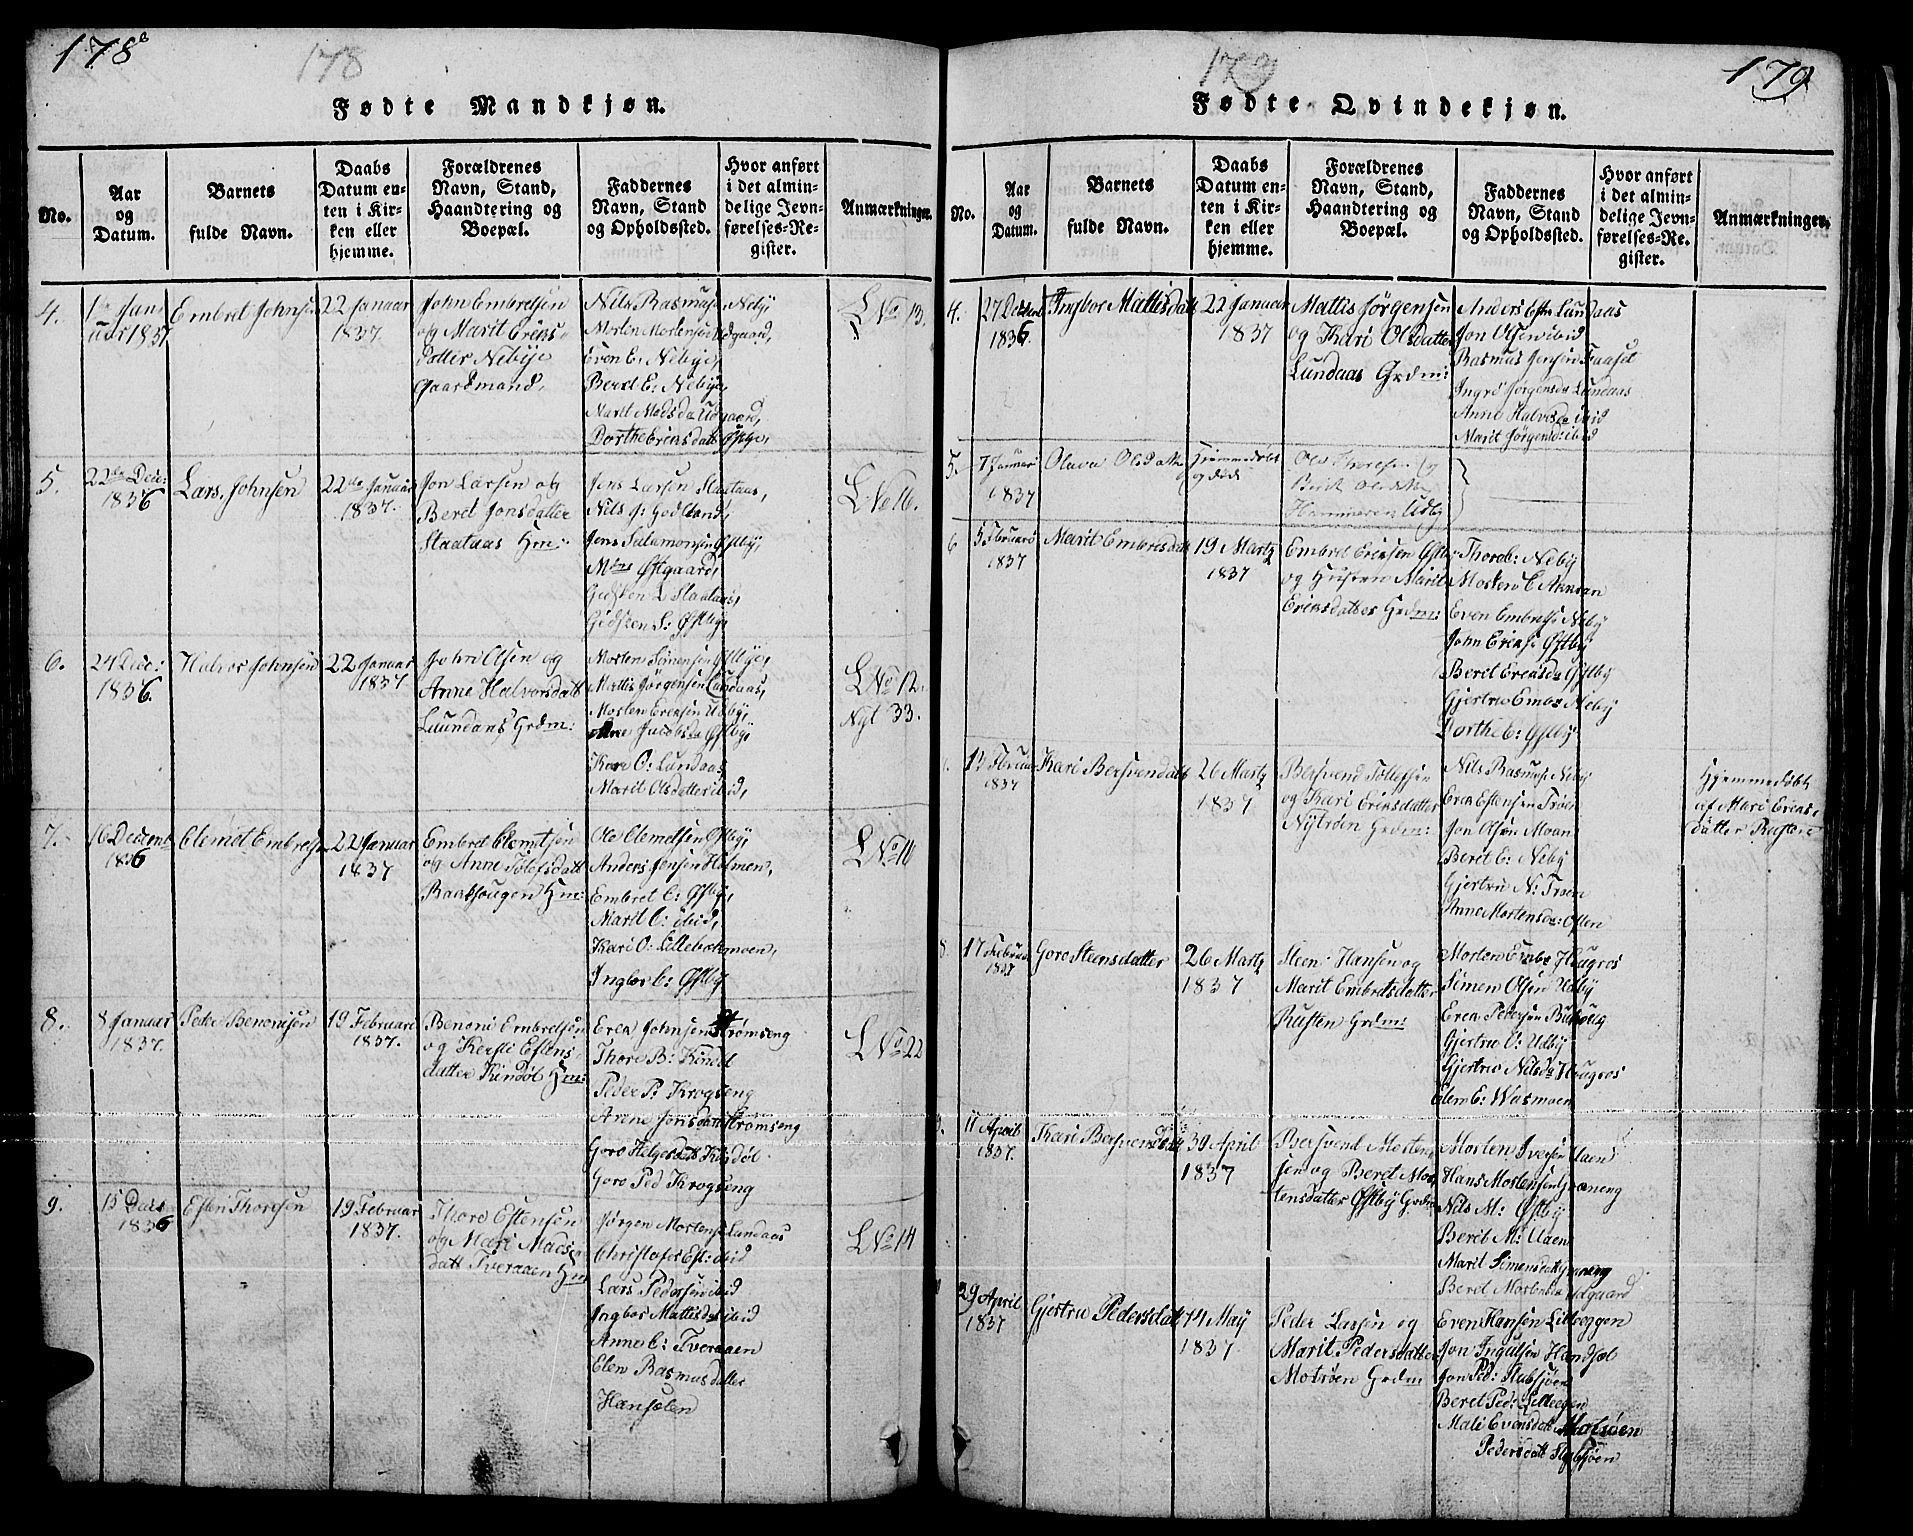 178
178
Fødte Mandkjøn.
No.
Aar
og
Datum.
Barnets
fulde Navn.
Daabs
Datum en-
ten i Kir-
ken eller
hjemme.
Forældrenes
Navn, Stand,
Haandtering og
Boepæl.
Faddernes
Navn, Stand
og Opholdssted.
Hvor anført
i det almin-
delige Jevn-
førelses-Re-
gister.
Anmærkninger.
4.
Jan
uar 1837
Embret Johnsen
22 Januar
1837.
John Embretsen
og Marit Erens
Datter Nebye
Gaardmand,
Nils Rasmuse Neby
Morten Mortensen Udgaard,
Even E. Nebye,
Beret E: Nebye,
Marit Madsda Udgaard,
Dorthe Ericksdatt Østbye,
L No 13.
5.
22de Dec:
1836
Lars Johnsen
22de Januar
1837.
Jon Larsen og
Beret Jonsdatter
Staataas Hm:
Jens Larsen Staataas,
Nils J: Godtland,
Jens Salamonsen Østby,
Østgaard,
L Staataas,
L: Østbye,
L No 16.
6.
24 Dec:
1836
Halvor Johnsen
22 Januar
1837
John Olsen og
Anne Halvorsdatt
Lundaas Grdm:
Morten Simensen Østbye,
Mattis Jørgensen Lundaas,
Morten Ericksen Udby,
Ane Jacobsda Østby,
Kari O: Lundaas
Marit Olsdatter ibid,
L No 12.
Nyt 33.
7.
16 Decemb
1836
Clemet Embretsen
22 Januar
1837
Embret Clemetsen
og Anne Tolefsdatt
Baakhougen Hm:
Ole Clemetsen Østby,
Anders Jensen Holmen,
Embret C: Østby,
Marit C: ibid,
Kari O: Lillebakmoen,
Ingbor C: Østby
L No 10
8.
8 Januar
1837.
Peder Benonisen
19 Februari
1837.
Benoni Embretsen
og Kersti Estens
datter Kindøl Hm:
Erick Johnsen Strømseng
Thore B: Kindøl
Peder P: Krogseng
Anne Jonsdatt Strømseng
Goro Helgesdatt Kindøl
Goro Ped Krogseng
L No 22
9.
15 Decbr
1836
Esten Thoresen
19 Februar
1837.
Thore Estensen
og Mari Mads
datt Tveraaen Hm
Jørgen Mortens Lundaas
Christofer Est: ibid
Lars Pedersen ibid
Ingbor Mattisda ibid
Anne E: Tveraaen
Elen Rasmusdatter
Hansølen
L No 14
179
179
Fødte Qvindekjøn.
No.
Aar
og
Datum.
Barnets
fulde Navn.
Daabs
Datum en-
ten i Kir-
ken eller
hjemme.
Forældrenes
Navn, Stand,
Haandtering og
Boepæl.
Faddernes
Navn, Stand
og Opholdssted.
Hvor anført
i det almin-
delige Jevn-
førelses-Re-
gister.
Anmærkninger.
4.
27 Decemb
1836
Ingbor Mattisdatt
22 Januar
1837
Mattis Jørgensen
og Kari Olsdatter
Lundaas Grdm:
Anders Lundaas
Jon Olsen ibid
Rasmus Jensen Faaset
Ingrо Jørgensda Lundaas
Anne Halvosda ibid
Marit Jørgensd: ibid
5.
7 Januari
1837
Olava Olsdatter
Hjemmedøbt
og død
Ole Thoresen og
Berit Olsdatter
Hammeren Udby
6
5 Februari
1837
Marit Embretsdatt
19 Martz
1837
Embret Ericksen Østby
og Hustru Marit
Ericksdatter Grdm:
Thore E: Neby
Morten E Aknran
Even Embretse Neby
John Ericks: Østby
Berit Ericksda Østby
Gjertru Embe Neby
Dorthe E: Østby
12 Februar
1837
Kari Bersvendatt
26 Martz
1837
Bersvend Tollefsen
og Kari Ericksdatter
Nytrøen Grdm:
Nils Rasmuse Neby
Erick Estensen Trøen
Jon Olsen Moan
Berit E: Neby
Gjertru N: Trøen
Anne Mortensda: Østen
Hjemmedøbt
af Mari Ericks
datter
8.
17 Februar
1837
Goro Steensdatter
26 Martz
1837
Steen Hansen og
Marit Embretsdatter
Rusten Grdm:
Morten Embe Hougros
Simen Olsen Udby
Erick Pedersen
Gjertru O: Udby
Gjertru Nilsda Hougros
Elen E: Wasmoen
9.
11 April
1837.
Kari Bersvensdatt
30 April
1837
Bersvend Morten
sen og Beret Mor
tensdatter Østby Grdm
Morten Iversen Uaen
Hans Mortensen Grøneng
Nils M: Østby
Berit M: Uaen
Marit Simensdatt
Beret Mortensda Udgaard
29 April
1837
Gjertru Pedersdatt
14 May
1837
Peder Larsen og
Marit Pedersdatter
Motrøen Grdm
Even Hansen Lilleeggen
Jon Ingulsen Handsøl
Jon Ped: Stubsjøen
Beret Ped: Lilleegen
Mali Evensdatt Motrøen
Pedersdatt Stubsjøen